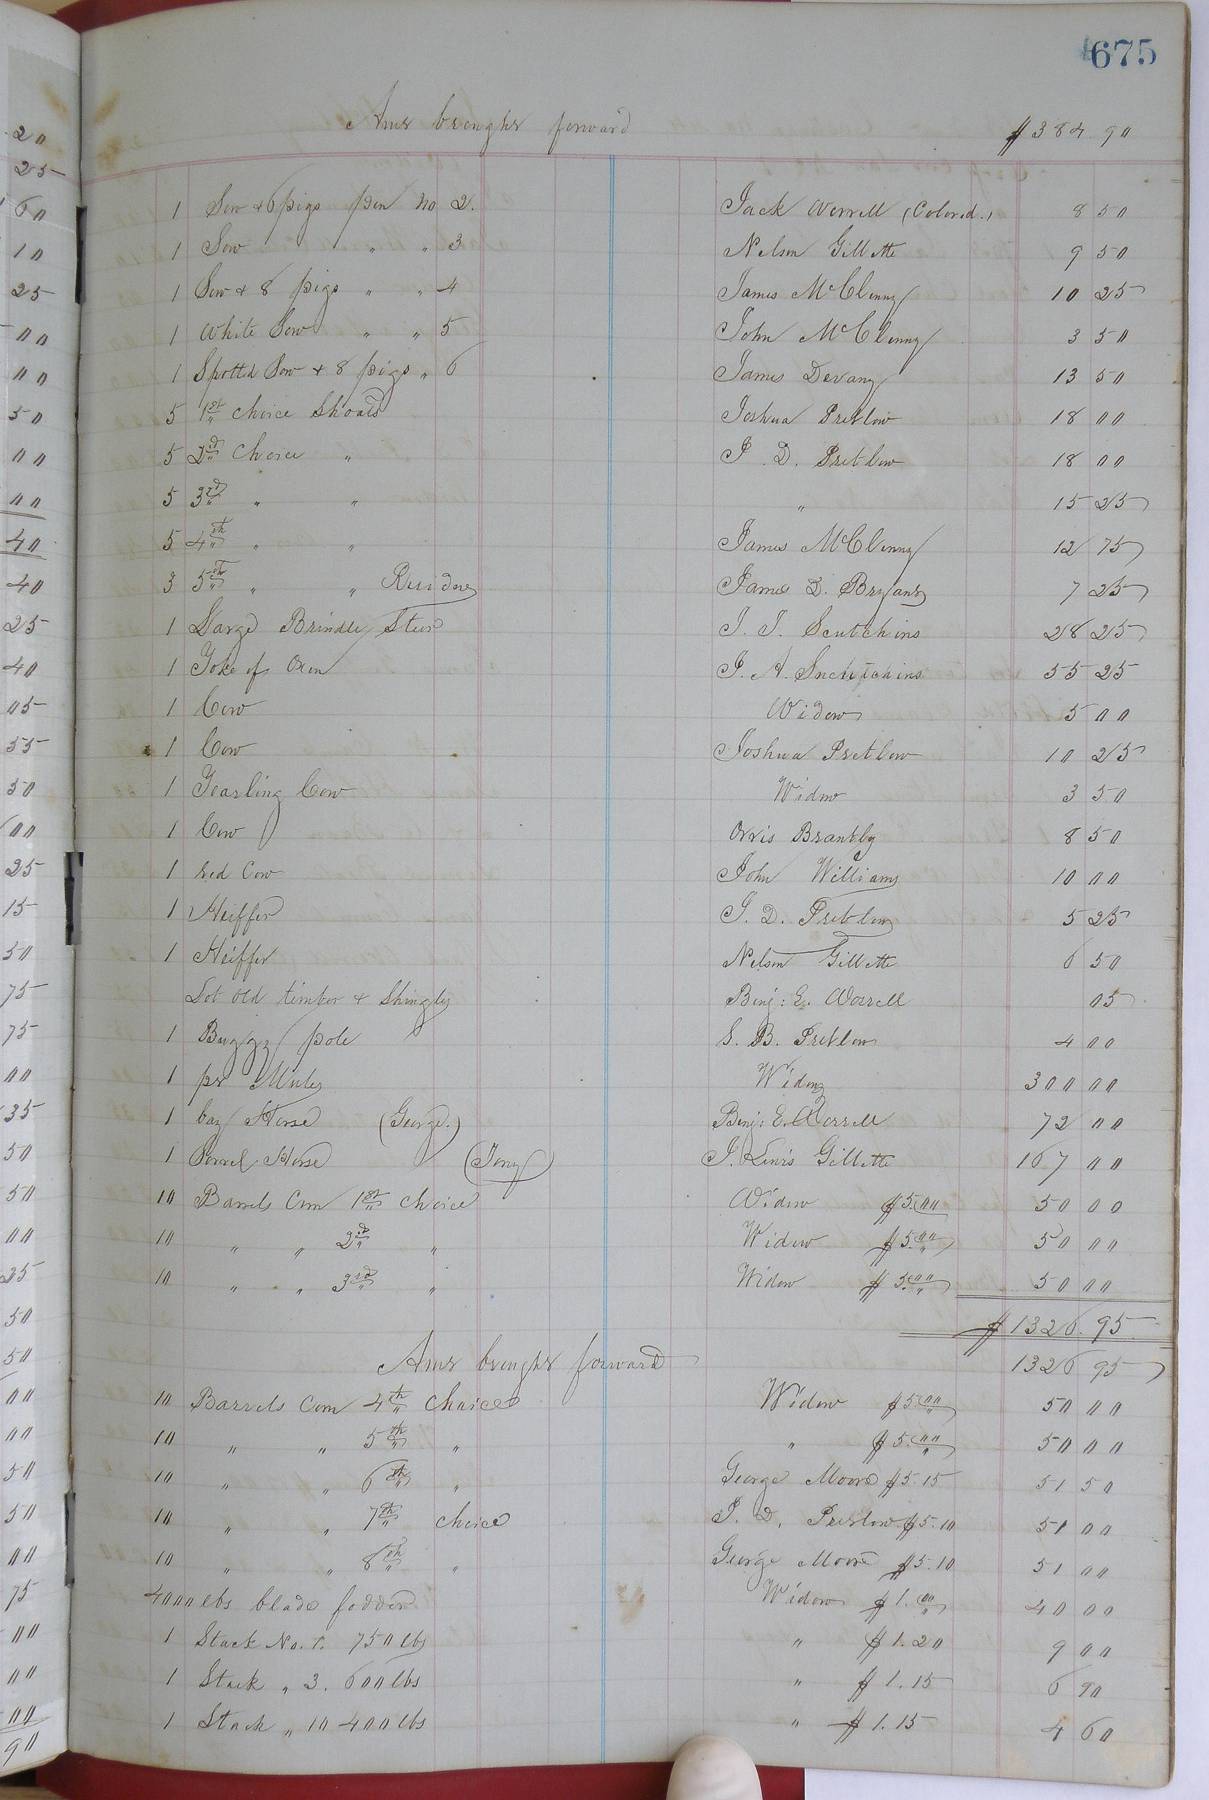 675
Amt brought forward $384 90
1 Sow & 6 pigs pen No 2. Jack Worrell (Colored.) 8 50
1 Sow " " 3 Nelson Gillette 9 50
1 Sow & 8 pigs " " 4 James McClenny 10 25
1 White Sow " " 5 John McClenny 3 50
1 Spotted Sow & 8 pigs " 6 James Devany 13 50
5 1st choice Shoats Joshua Pretlow 18 00
5 2d choice " J. D. Pretlow 18 00
5 3rd " " " 15 25
5 4th " " James McClenny 12 75
3 5th " " Residue James D. Bryant 7 25
1 Large Brindle Steer J. J. Scutchins 28 25
1 Yoke of Oxen J. A. Scutchins 55 25
1 Cow Widow 5 00
1 Cow Joshua Pretlow 10 25
1 Yearling Cow Widow 3 50
1 Cow Orris Brantley 8 50
1 red Cow John Williams 10 00
1 Heiffer J. D. Pretlow 5 25
1 Heiffer Nelson Gillette 6 50
Lot old timber & Shingles Benj: E. Worrell 05
1 Buggy pole S. B. Pretlow 4 00
1 pr Mules Widow 300 00
1 bay Horse (George.) Benj: E. Worrell 72 00
1 Sorrel Horse (Tony) J. Lewis Gillette 167 00
10 Barrels Corn 1st choice Widow $5.00 50 00
10 " " 2d " Widow $5.00 50 00
10 " " 3rd " Widow $5.00 50 00
$1326.95
Amt brought forward 1326 95
10 Barrels Corn 4th choice Widow $5.00 50 00
10 " " 5th " " $5.00 50 00
10 " " 6th " George Moore $5.15 51 50
10 " " 7th choice J. D. Pretlow $5.10 51 00
10 " " 8th " George Moore $5.10 51 00
4000 lbs blade fodder Widow $1.00 40 00
1 Stack No. 1. 750 lbs " $1.20 9 00
1 Stack " 3. 600 lbs " $1.15 6 90
1 Stack " 10 400 lbs " $1.15 4 60